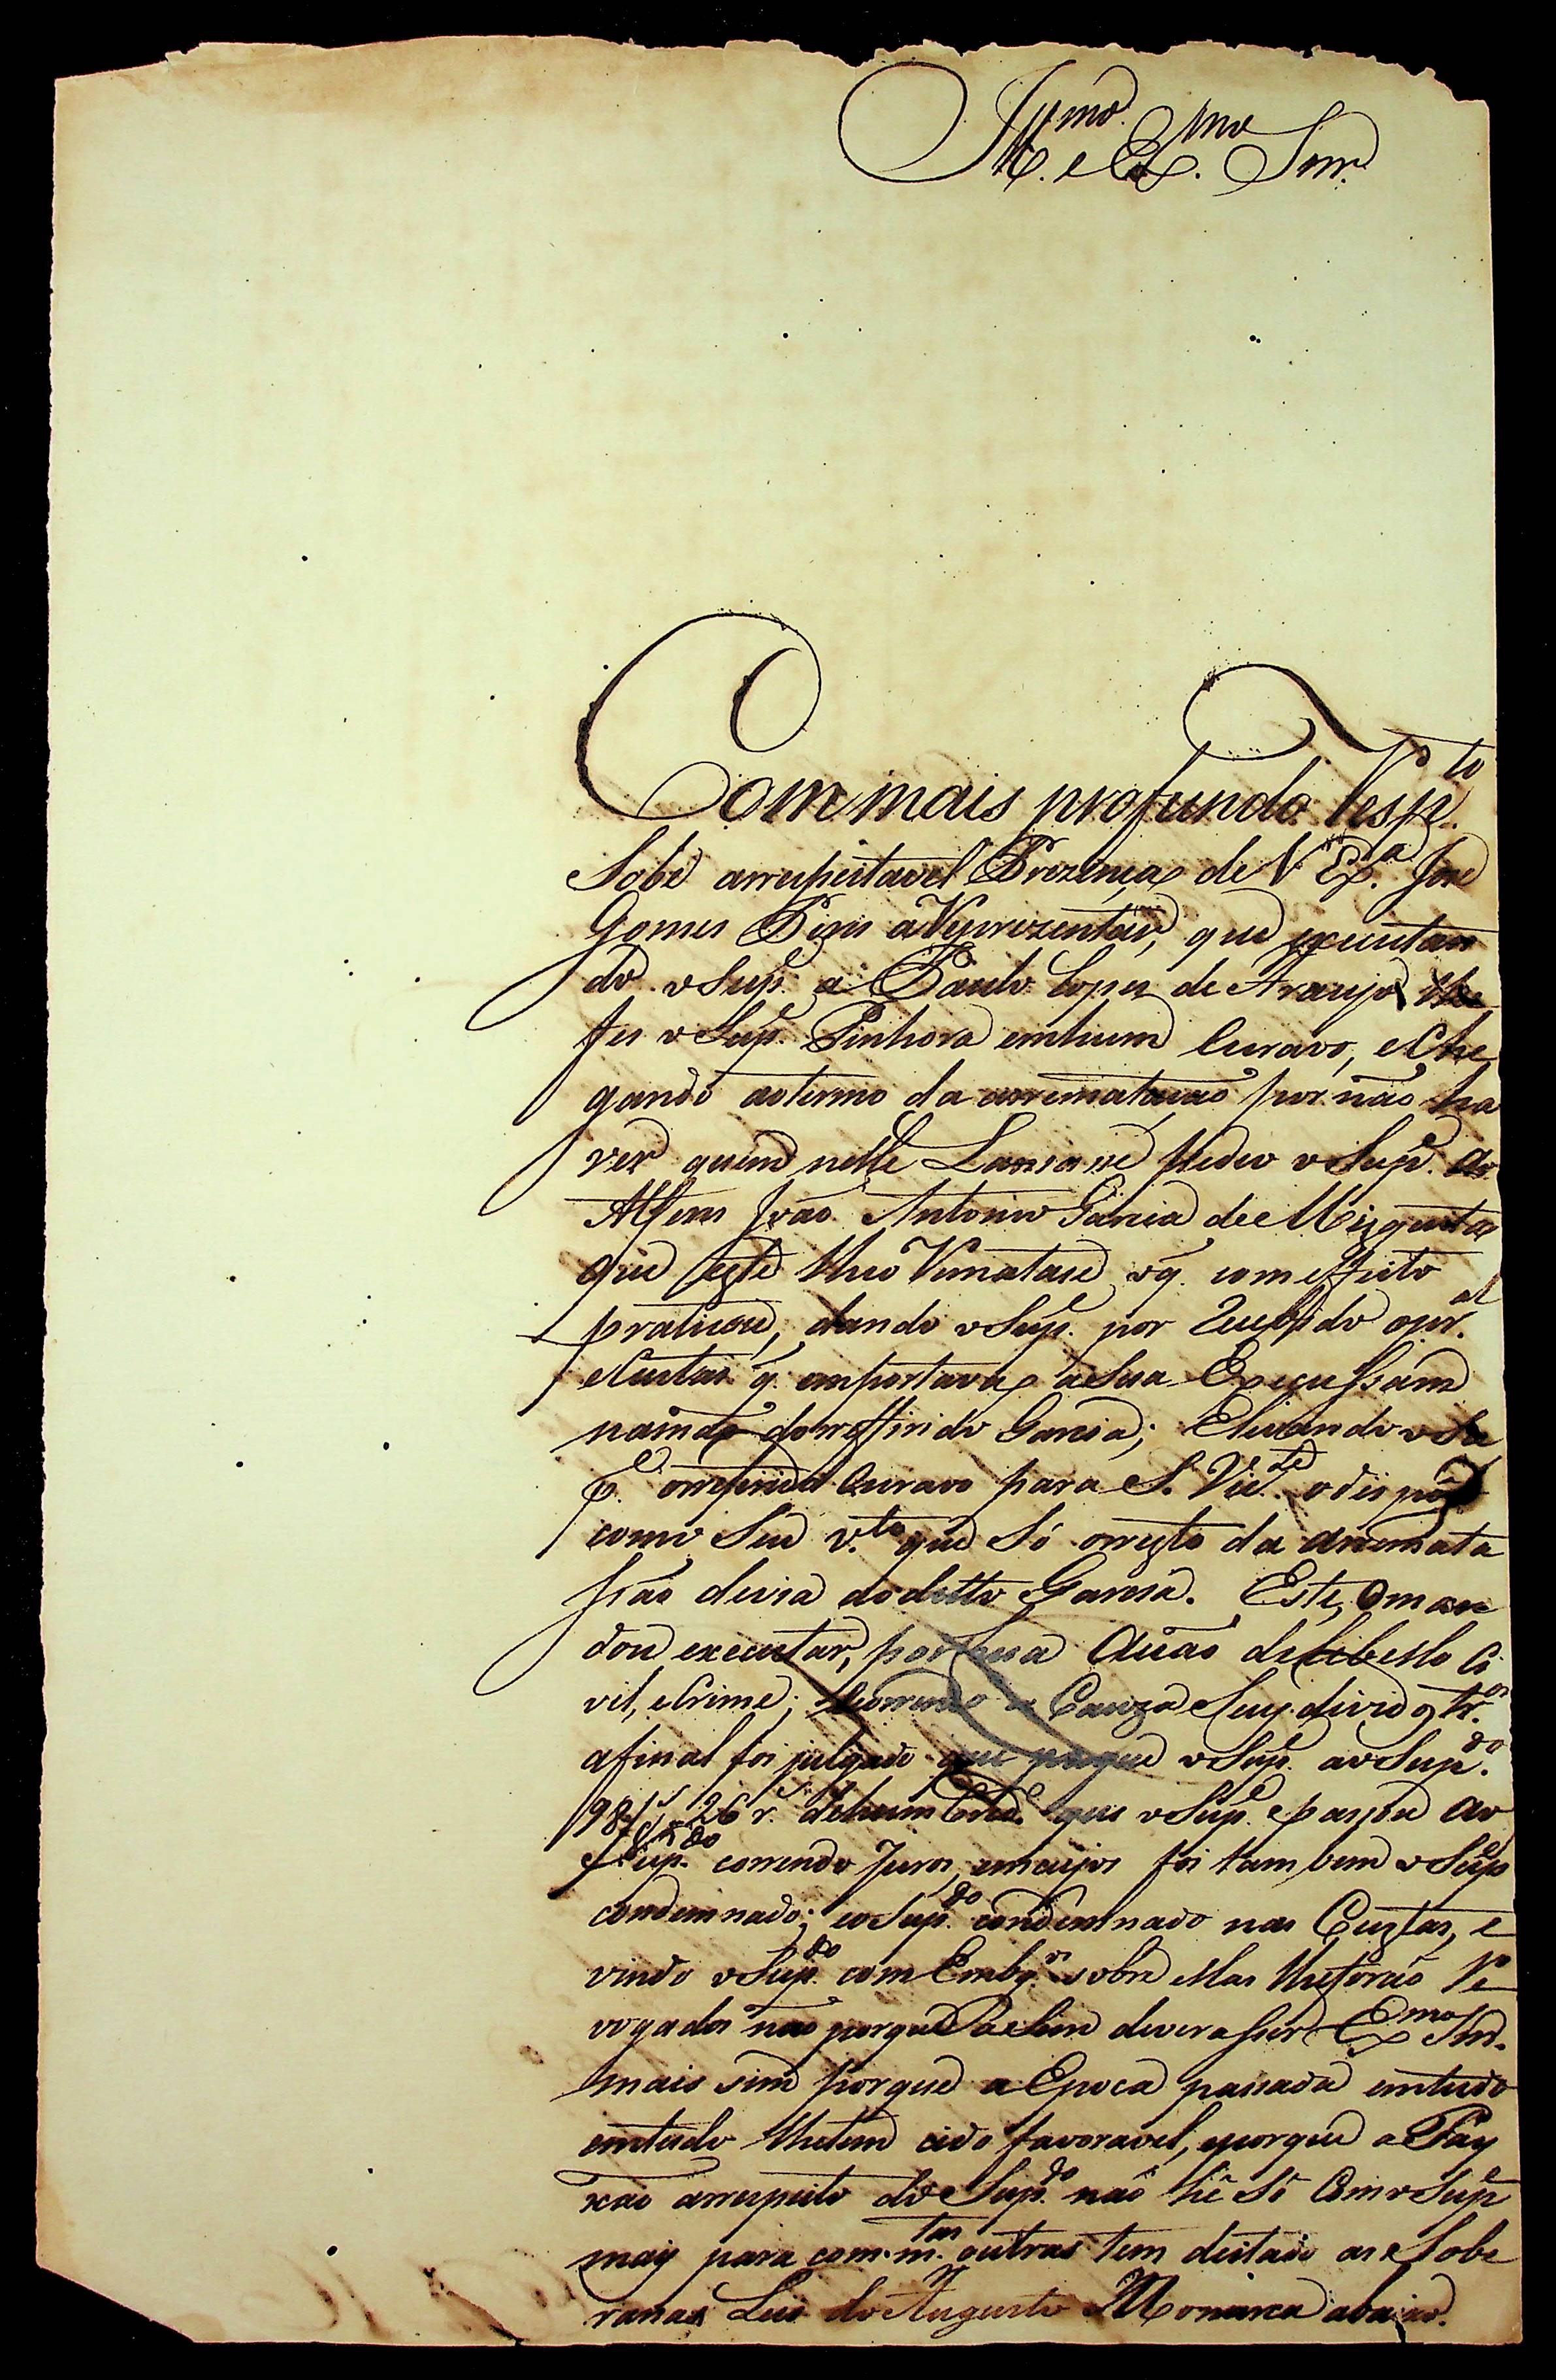 Ill.mo e Ex.mo Snr.
Com mais profundo Resp.to
Sobe arrespeitavel Prezença de V. Ex.a José
Gomes Pires aReprezentar, que executan
do oSup.e a Paulo Lopes de Araujo lhe
fes oSup.e Pinhora emhum Escravo, eChe
gando aotermo da arrematacão por não ha
ver quem nelle Lansasse pedeo oSup.e ao
Alferes João Antonio Garcia de Misquita
que este lheo Rematase, oq. com effeito
praticou, dando oSup.e por Recebido opr.al
eCustas q. emportava aSua Execussam
namão dorefferido Garcia; Elevando oSu
p.e orreferido Escravo para S. Vic.te odispôs
como Seu v.to que Só orresto da arremata
ssão devia aodetto Garcia. Este, oman
dou executar, por hua Acsão deLibello Ci
vil, eCrime; Correndo a Cauza Seus devidos tr.os
afinal foi julgado que pague oSup.e aoSup.do
98$ 26 r.s dehum Cred.o que oSup.e epassou ao
Sup.do correndo Juros, emcujos foi tambem oSup.e
condemnado; eoSup.do condemnado nas Custas, e
vindo oSup.do com Emb.os sobre ellas lheforão Re
vogados não porque aSim devera sser Ex.mo Snr.
mais sim porque a Epoca passada emtudo
emtudo lhetem cido favoravel, eporque a Pay
xão arrespeito do Sup.do não hé Só Com oSup.e
may para com m.tas outras tem deitado as Sobe
ranas Leis do Augusto Monarca abaixo.